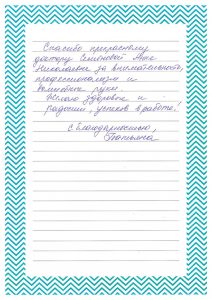 Спасибо прекрасному
доктору Семёновой Анне
Николаевне за внимательность,
профессионализм и
золотые руки.
Желаю здоровья и
радости, успехов в работе!
С благодарностью,
Татьяна